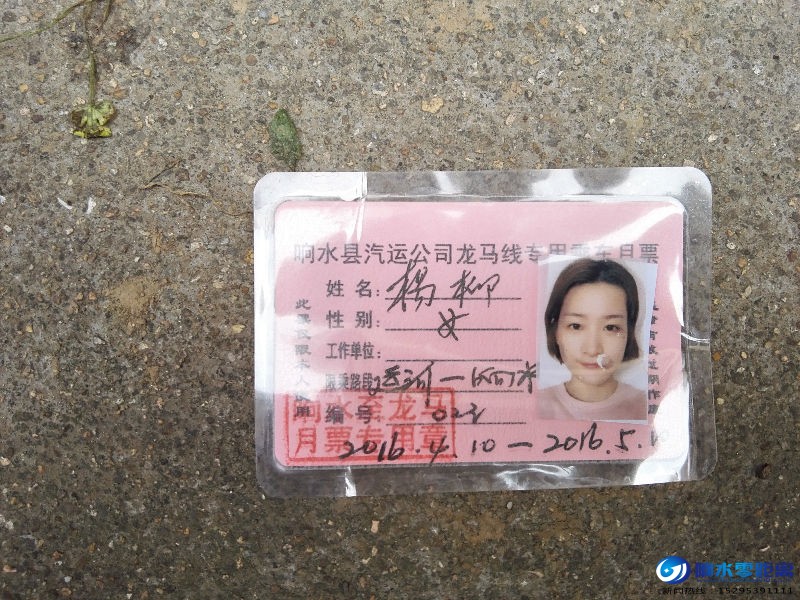 响水县汽运公司龙马线专用乘车月票
姓 名：杨柳
性 别：女
工作单位：
限乘路段：运河—响水
编 号：023
2016.4.10—2016.5.10
响水至龙马
月票专用章
响水零距离
新闻热线：15295391111